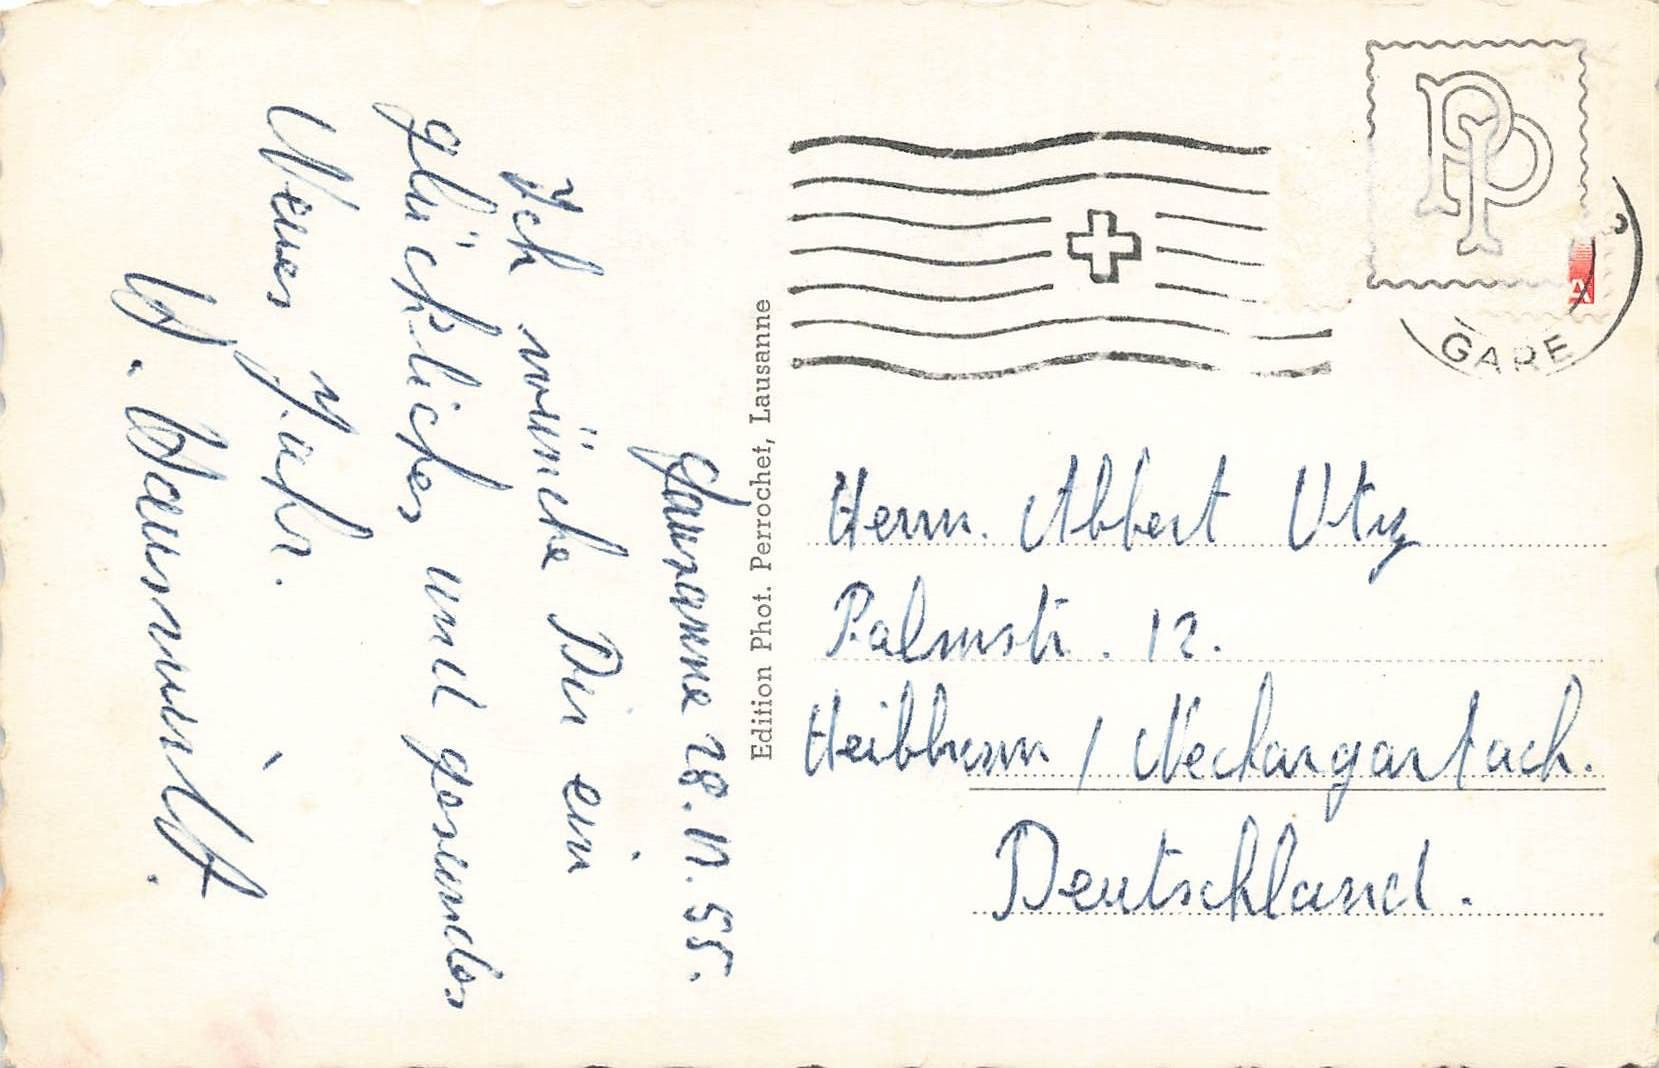 Lausanne 28. 12. 55.
Ich wünche Dir ein
glückliches und gesundes
Neues Jahr.
W.
Edition Phot. Perrochet, Lausanne
PP
GARE
Herrn. Albert Utz
Palmstr. 12.
Heilbronn / Neckargartach.
Deutschland.